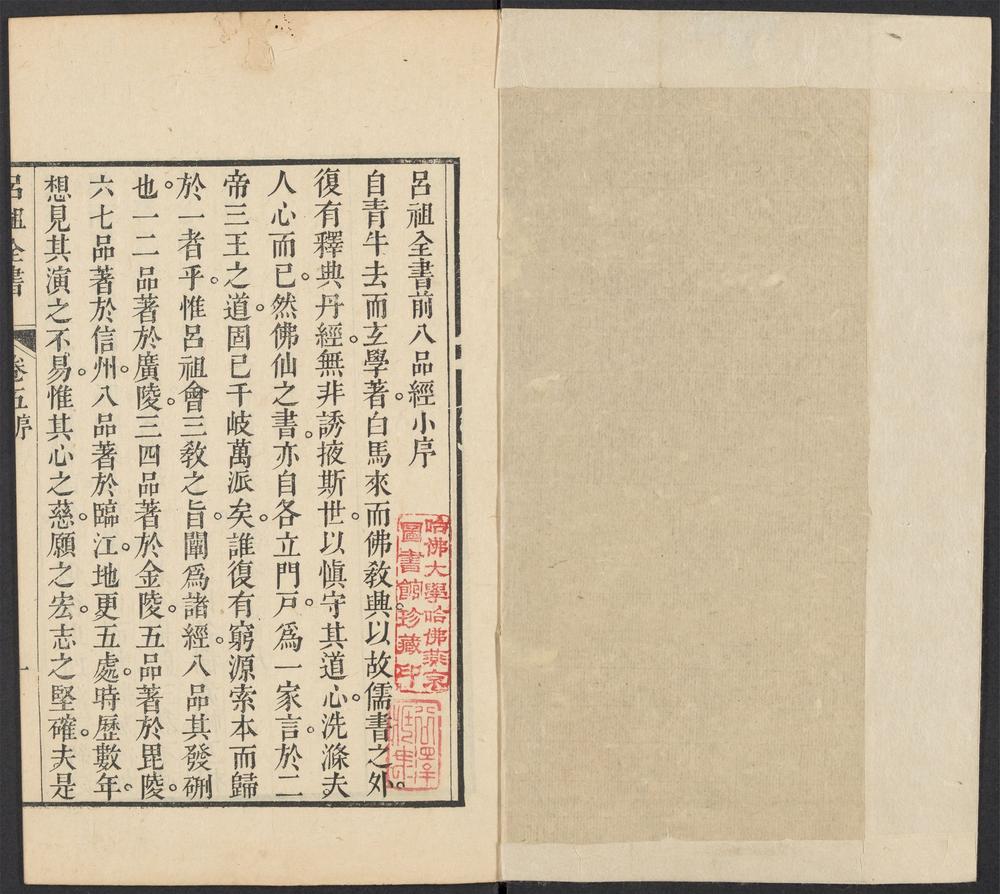 呂祖全書前八品經小序
自青牛去而玄學著。白馬來而佛教興。以故儒書之外。
復有釋典丹經。無非誘掖斯世。以慎守其道心。洗滌夫
人心而已。然佛仙之書。亦自各立門戶。爲一家言。於二
帝三王之道。固已千岐萬派矣。誰復有窮源索本而歸
於一者乎。惟呂祖會三敎之旨。闡爲諸經。八品其發硎
也。一二品著於廣陵。三四品著於金陵。五品著於毘陵。
六七品著於信州。八品著於臨江。地更五處。時歷數年。
想見其演之不易。惟其心之慈。願之宏。志之堅確。夫是
呂祖全書
卷五序
一
哈佛大學哈佛燕京
圖書館珍藏印